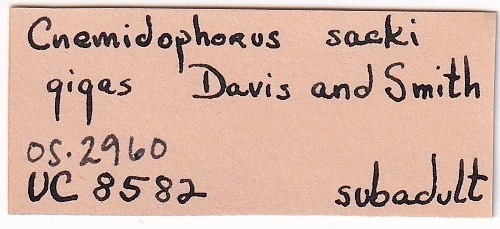 Cnemidophorus sacki
gigas Davis and Smith
OS.2960
UC 8582 subadult